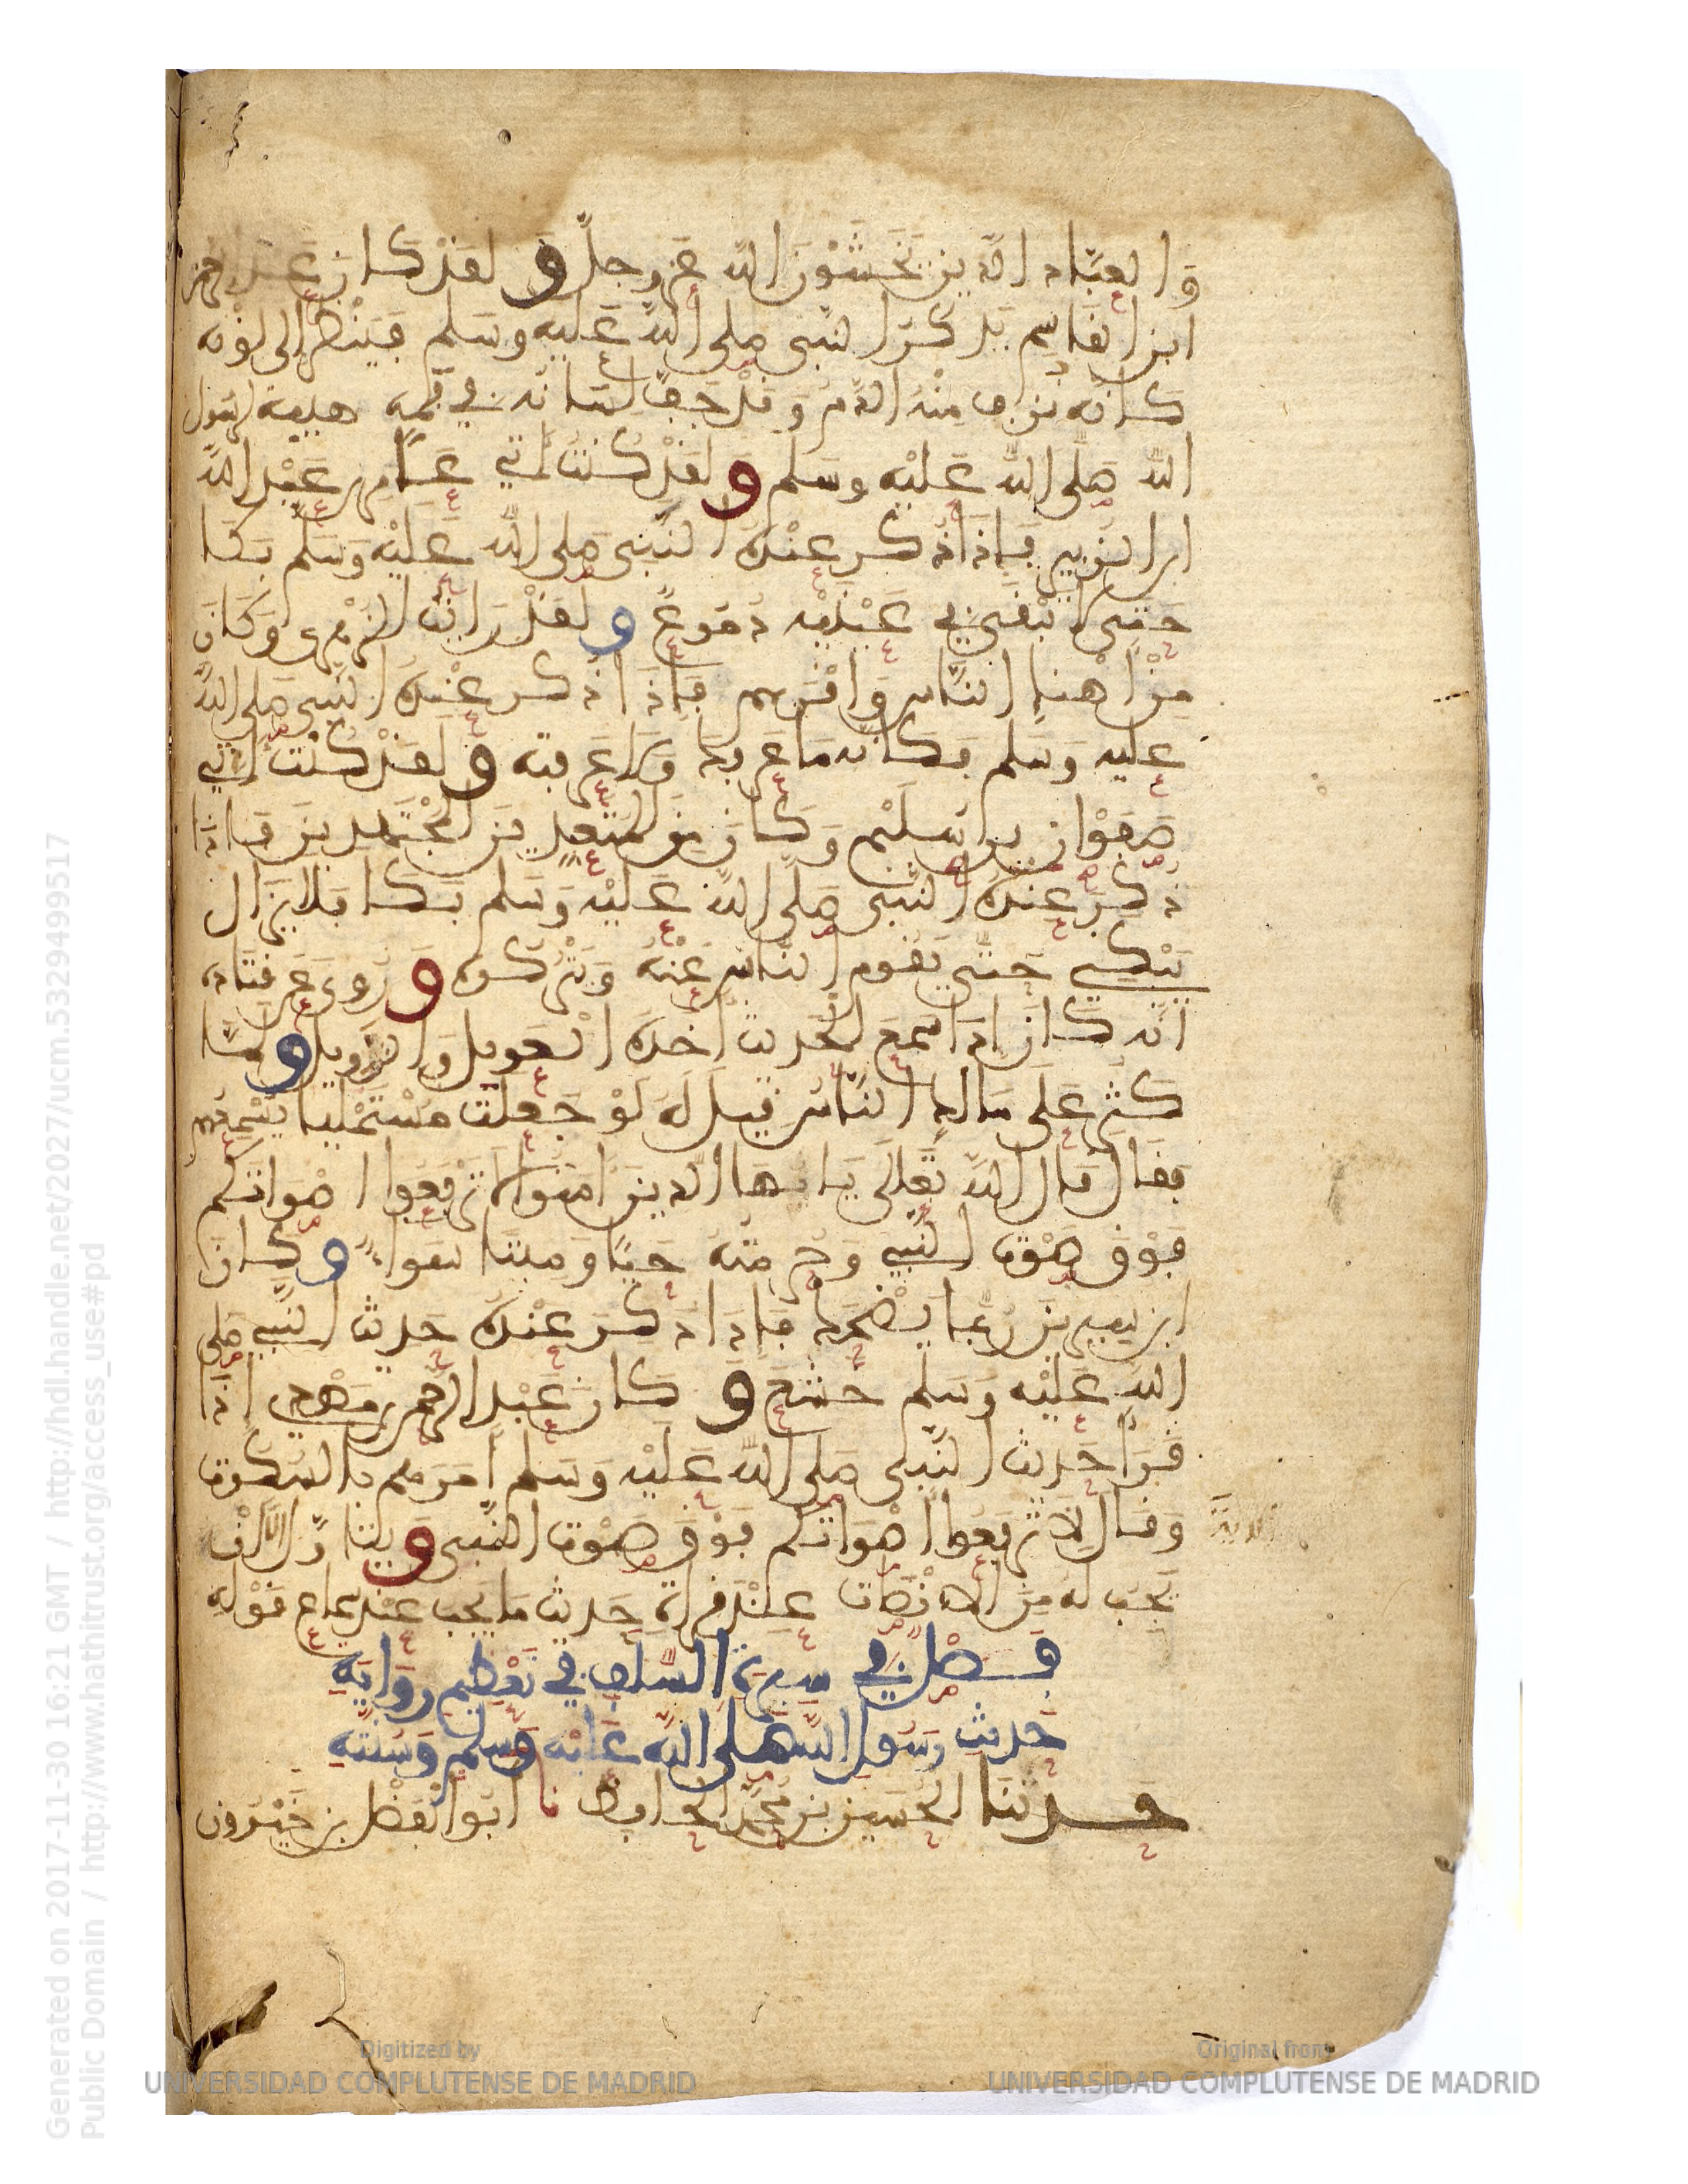 وَالعبّاد الّذين يَخشَوْنَ اللّه عزوجلّ وَلقدْ كَان عَبْد الرحمن
ابن القاسم يَذكرُ النّبى صلى اللّه عَليه وسَلم فيَنْظر إلى لوْنه
كانّه نزف منْهُ الدّم وَقدْ جَفّ لسَانه في فمه هيبة لرسول
اللّه صَلى اللّه عَليْه وسَلم وَلقدْ كُنت ءاتي عَامر بن عَبْد اللّه
ابن الزبير فإذَا ذُكر عنْدهُ النّبى صَلى اللّه عَليْه وَسَلم بَكَا
حَتى لا يبْقى في عَيْنيْه دُمُوعٌ ولقدْ رَايْت الزهْرى وَكَانَ
مِنْ اهْنإ النّاس وَاقربهم فإذَا ذُكر عنْدهُ النّبى صَلى اللّه
عليه وَسَلم فكَأنه مَا عَرفك وَلا عَرفته ولقدْ كُنْت ءاتي
صَفوْان بن سُلَيْم وَكَان من المتعبدين المجْتَهدينَ فإذا
ذُكرَ عِنْدهُ النّبى صَلى اللّه عَليْه وَسَلم بَكا فلا يزال
يَبْكي حَتّى يَقوم النّاس عَنْهُ وَيتْركوه وَرُوى عَن قتادة
انّه كَان إذَا سَمعَ الحَديث أخذهُ العَويل وَالزّويل ولمّا
كَثرَ عَلى مَالك النّاسُ قيل لهُ لوْ جَعلت مُسْتَمْليا يُسْمعهم
فقال قال اللّه تعَالَى يَايّهَا الّذينَ امَنوا لا ترْفعُوا اصْوَاتكم
فوْق صَوْت النّبي وَحُرمتهُ حَيّا وَميتا سَواء وكان
ابن سِيرينَ رُبما يَضْحَك فإذا ذُكرَ عنْدهُ حَديث النّبي صَلى
اللّه عَليْه وَسَلم خَشعَ وَكانَ عَبْد الرحمن بن مَهْدي إذَا
قرَأ حَديث النّبى صَلى اللّه عَليْه وَسَلم أمَرَهم بالسّكوت
وَقال لا ترْفعُوا اصْوَاتكم فوْق صَوْت النّبى وَيتأوّل انّه
الاية
يَجبُ لهُ منَ الانْصَات عِنْد قراءة حَديثه مَا يَجب عِنْد سَماع قوْله
فصْل في سيرة السّلف في تعْظيم روَاية
حَديث رَسُول اللّه صَلى اللّه عَليْه وَسلم وَسُنّته
حَدثنا الحُسَين بن مُحمّد الحَافظ نا أبو الفضْل بن خَيْرون